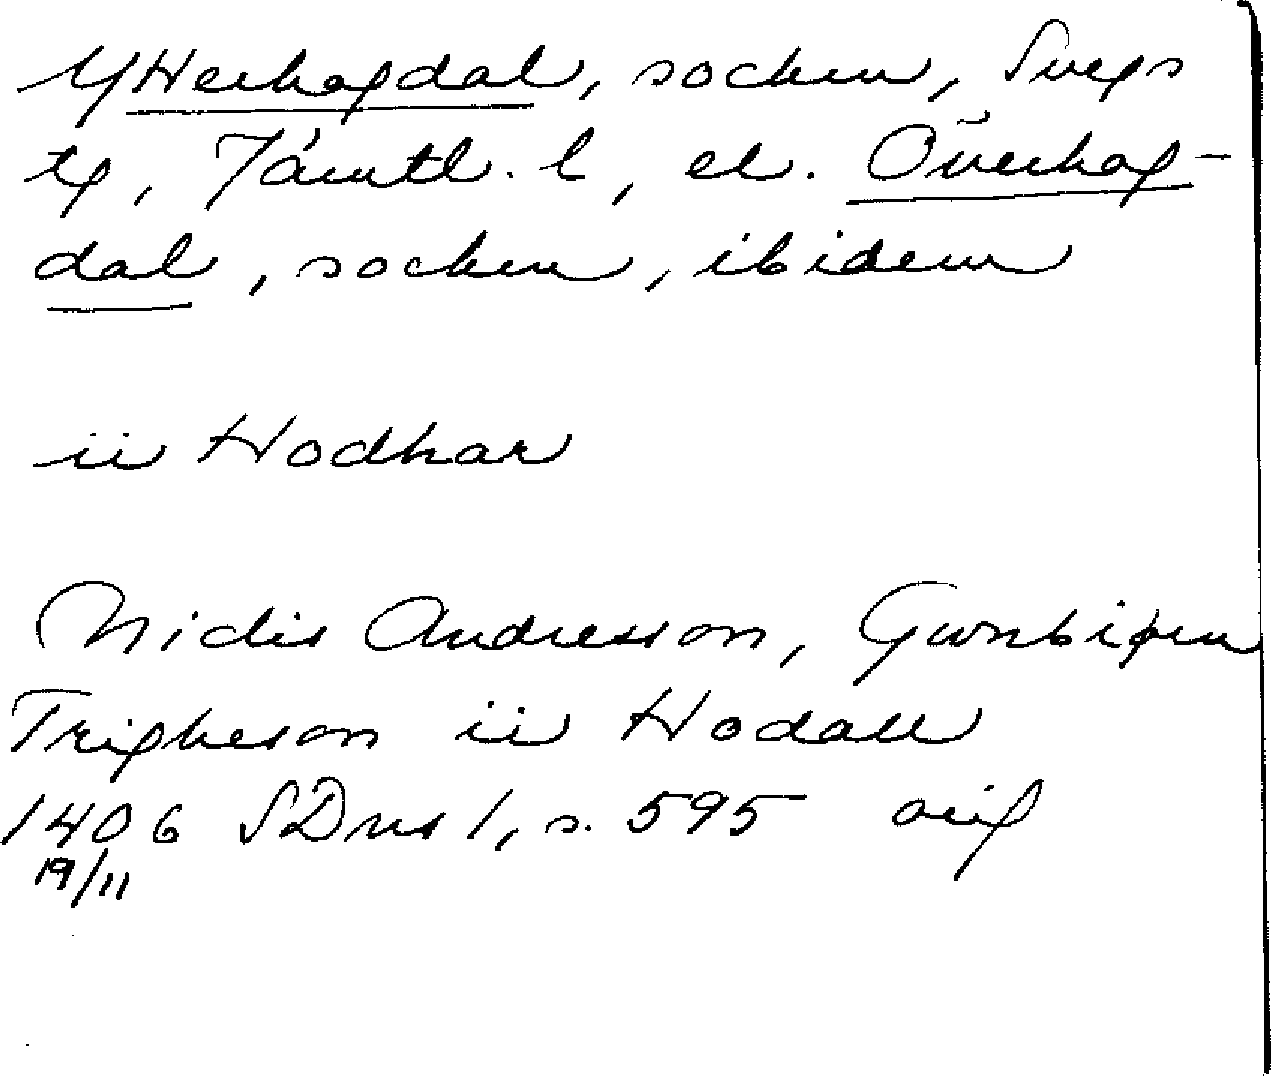 Ytterhogdal, socken, Svegs
tg, Jämtl. l, el. Överhog-
dal, socken, ibidem
ii Hodhar
Nidis Andresson, Gwnbiþrn
Trigheson ii Hodall
1406 SDns 1, s. 595 orig
19/11